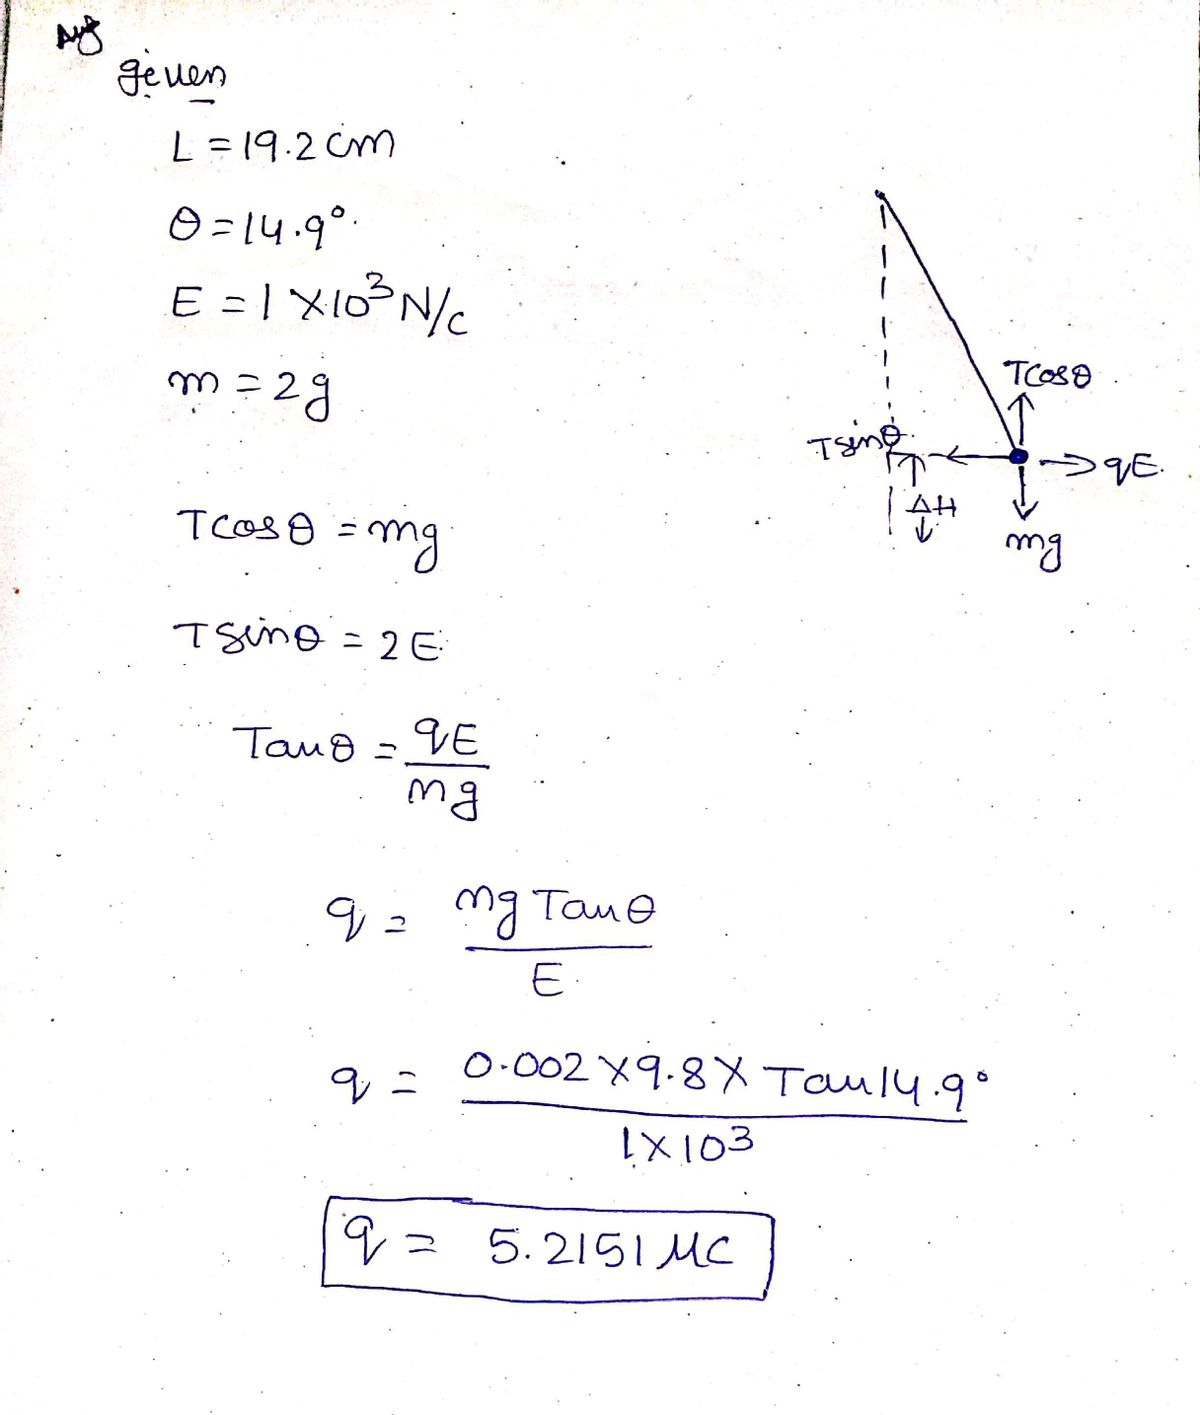 Ans
given
L = 19.2 cm
θ = 14.9°.
E = 1 × 10³ N/C
m = 2g
TCosθ
Tsinθ
qE.
ΔH
mg
TCosθ = mg
Tsinθ = 2E
Tanθ = qE
mg
q = mg Tanθ
E
q = 0.002 × 9.8 × Tan14.9°
1×10³
q = 5.2151 MC